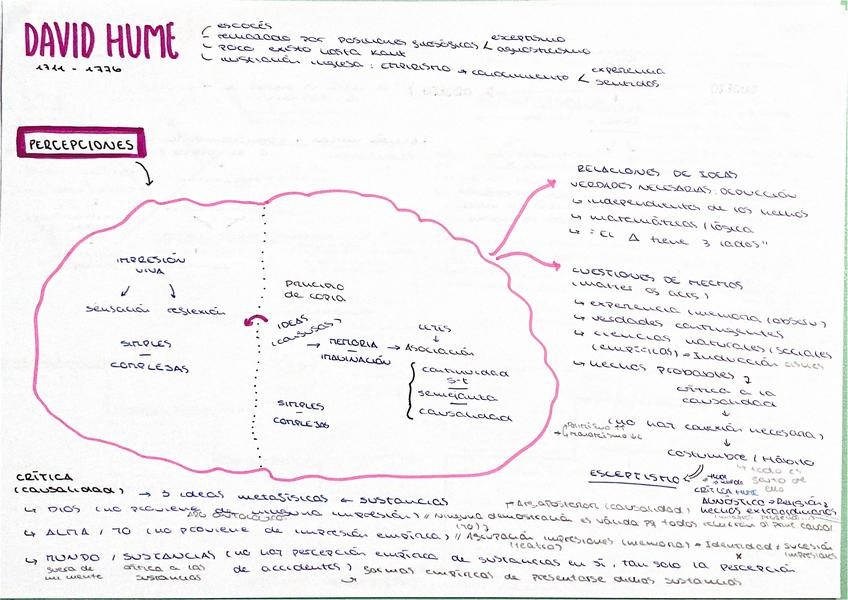 DAVID HUME
1711 - 1776
escocés
rechazado por posiciones filosóficas < escepticismo
agnosticismo
poco éxito hasta Kant
ilustración inglesa: empirismo → conocimiento < experiencia
sentidos
PERCEPCIONES
IMPRESIÓN
VIVA
sensación reflexión
SIMPLES
COMPLEJAS
principio
de copia
IDEAS
→ MEMORIA → ASOCIACIÓN
IMAGINACIÓN
LEYES
continuidad
s-t
semejanza
causalidad
SIMPLES
COMPLEJAS
RELACIONES DE IDEAS
VERDADES NECESARIAS: DEDUCCIÓN
↳ independientes de los hechos
↳ matemáticas / lógica
↳ "El Δ tiene 3 lados"
CUESTIONES DE HECHOS
↳ experiencia (memoria / observ)
↳ verdades contingentes
↳ ciencias naturales / sociales
(empíricas) → Inducción
↳ hechos probables
crítica a la
causalidad
(no hay conexión necesaria)
costumbre / Hábito
ESCEPTISMO
CRÍTICA HUME
AGNÓSTICO → Religión
hechos extraordinarios
CRÍTICA
(causalidad) → 3 ideas metafísicas ← sustancias
↳ DIOS (no proviene de ninguna impresión) // Ninguna demostración es válida pq todos
↳ ALMA / YO (no proviene de impresión empírica) // Agrupación impresiones (memoria) → Identidad
sucesión
impresiones
(teatro)
↳ MUNDO / SUSTANCIAS (no hay percepción empírica de sustancias en sí, tan solo la percepción
fuera de
mi mente
crítica a las
sustancias
de accidentes) formas empíricas de presentarse dichas sustancias